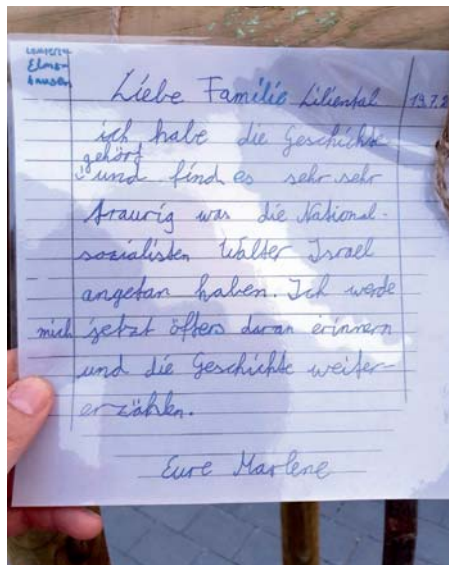 Liebe Familie Liliental
19.7.2
ich habe die Geschichte
gehört
und find es sehr sehr
traurig was die National-
sozialisten Walter Israel
angetan haben. Ich werde
mich jetzt öfters daran erinnern
und die Geschichte weiter-
erzählen.
Eure Marlene